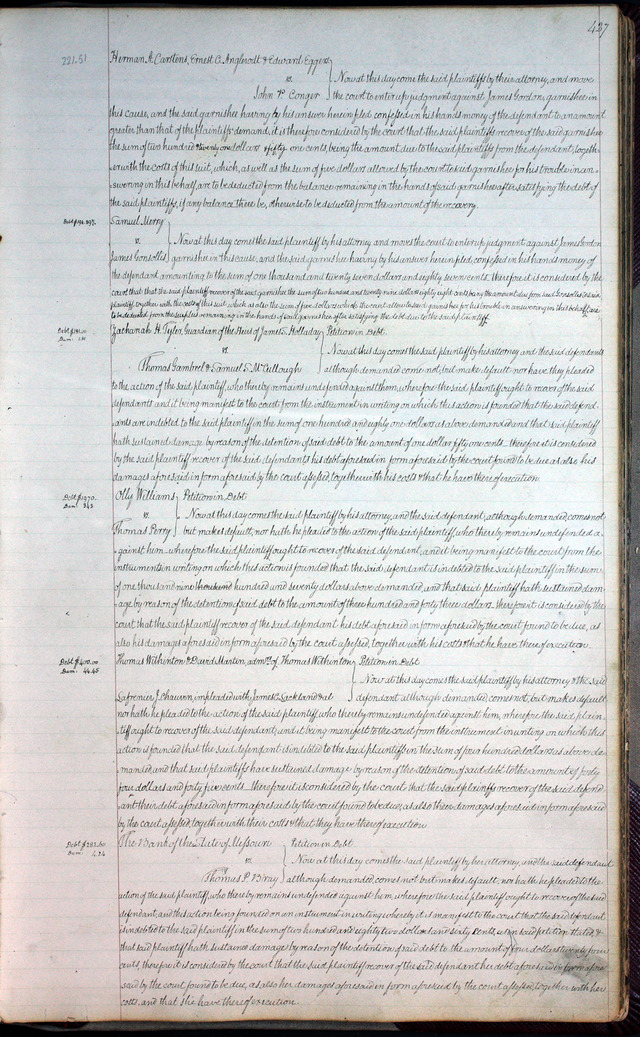 427
221.51 Herman A. Carstens, Ernest C. Angleroth & Edward Eggers
vs. Now at this day come the said plaintiffs by their attorney, and move
John P. Conger the court to enter up judgment against James Gordon, garnishee in
this cause, and the said garnishee having by his answer herein filed confessed in his hands money of the defendant to an amount
greater than that of the plaintiffs demand, it is therefore considered by the court that the said plaintiffs recover of the said garnishee
the sum of two hundred & twenty one dollars & fifty one cents, being the amount due to the said plaintiffs from the defendant, togeth-
er with the costs of this suit, which, as well as the sum of five dollars allowed by the court to said garnishee for his trouble in an-
swering in this behalf, are to be deducted from the balance remaining in the hands of said garnishee after satisfying the debt of
the said plaintiffs, if any balance there be, otherwise to be deducted from the amount of the recovery.
Samuel Merry
vs. Now at this day comes the said plaintiff by his attorney, and moves the court to enter up judgment against James Gordon
James Gonsolles garnishee in this cause, and the said garnishee having by his answer herein filed confessed in his hands money of
the defendant amounting to the sum of one thousand and twenty seven dollars and eighty seven cents, therefore it is considered by the
court that the said plaintiff recover of the said garnishee the sum of two hundred and twenty nine dollars eighty eight cents being the amount due from said Gonsolles to said
plaintiff, together with the costs of this suit which as also the sum of five dollars which the court allow to said garnishee for his trouble in answering in this behalf, are
to be deducted from the surplus remaining in the hands of said garnishee after satisfying the debt due to the said plaintiff.
Zachariah H. Tyler, Guardian of the Heirs of James T. Holladay Petition in Debt
vs. Now at this day comes the said plaintiff by his attorney and the said defendants
Thomas Gambrel & Samuel T. McCullough although demanded come not, but make default, nor have they pleaded
to the action of the said plaintiff, who thereby remains undefended against them, wherefore the said plaintiff ought to recover of the said
defendants and it being manifest to the court from the instrument in writing on which the action is founded that the said defend-
ants are indebted to the said plaintiff in the sum of one hundred and eighty one dollars as above demanded and that said plaintiff
hath sustained damage by reason of the detention of said debt to the amount of one dollar fifty one cents, therefore it is considered
by the said plaintiff recover of the said defendants his debt aforesaid in form aforesaid by the court found to be due as also his
damages aforesaid in form aforesaid by the court assessed, together with his costs & that he have thereof execution
Debt $1970.
Dam. 343.
Olly Williams Petition in Debt
vs. Now at this day comes the said plaintiff by his attorney, and the said defendant, although demanded, comes not
Thomas Perry but makes default; nor hath he pleaded to the action of the said plaintiff, who thereby remains undefended a-
gainst him, wherefore the said plaintiff ought to recover of the said defendant, and it being manifest to the court from the
instrument in writing on which this action is founded that the said defendant is indebted to the said plaintiff in the sum
of one thousand nine hundred and seventy dollars above demanded, and that said plaintiff hath sustained dam-
age by reason of the detention of said debt to the amount of three hundred and forty three dollars, therefore it is considered by the
court that the said plaintiff recover of the said defendant his debt aforesaid in form aforesaid by the court found to be due, as
also his damages aforesaid in form aforesaid by the court assessed, together with his costs & that he have thereof execution.
Debt $400.00
Dam. 44.45
Thomas Withinton & David Martin, admrs. of Thomas Withinton Petition in Debt
Now at this day comes the said plaintiff by his attorney & the said
Lafrenier J. Chauvin, impleaded with James C. Lackland & al defendant although demanded, comes not, but makes default
nor hath he pleaded to the action of the said plaintiff who thereby remains undefended against him, wherefore the said plain-
tiff ought to recover of the said defendant, and it being manifest to the court from the instrument in writing on which this
action is founded that the said defendant is indebted to the said plaintiffs in the sum of four hundred dollars as above de-
manded, and that said plaintiffs have sustained damage by reason of the detention of said debt to the amount of forty
four dollars and forty five cents. therefore it is considered by the court that the said plaintiffs recover of the said defend-
ant their debt aforesaid in form aforesaid by the court found to be due, as also their damages aforesaid in form aforesaid
by the court assessed, together with their costs & that they have thereof execution.
Debt $282.60
Dam. 4.24
The Bank of the State of Missouri Petition in Debt
vs. Now at this day comes the said plaintiff by her attorney, and the said defendant
Thomas P. Bivay although demanded, comes not but makes default; nor hath he pleaded to the
action of the said plaintiff, who thereby remains undefended against him, wherefore the said plaintiff ought to recover of the said
defendant, and this action being founded on an instrument in writing whereby it is manifest to the court that the said defendant
is indebted to the said plaintiff in the sum of two hundred and eighty two dollars and sixty cents, as in said petition stated &
that said plaintiff hath sustained damage by reason of the detention of said debt to the amount of four dollars twenty four
cents, therefore it is considered by the court that the said plaintiff recover of the said defendant her debt aforesaid in form afore-
said by the court found to be due, as also her damages aforesaid in form aforesaid by the court assessed together with her
costs, and that she have thereof execution.